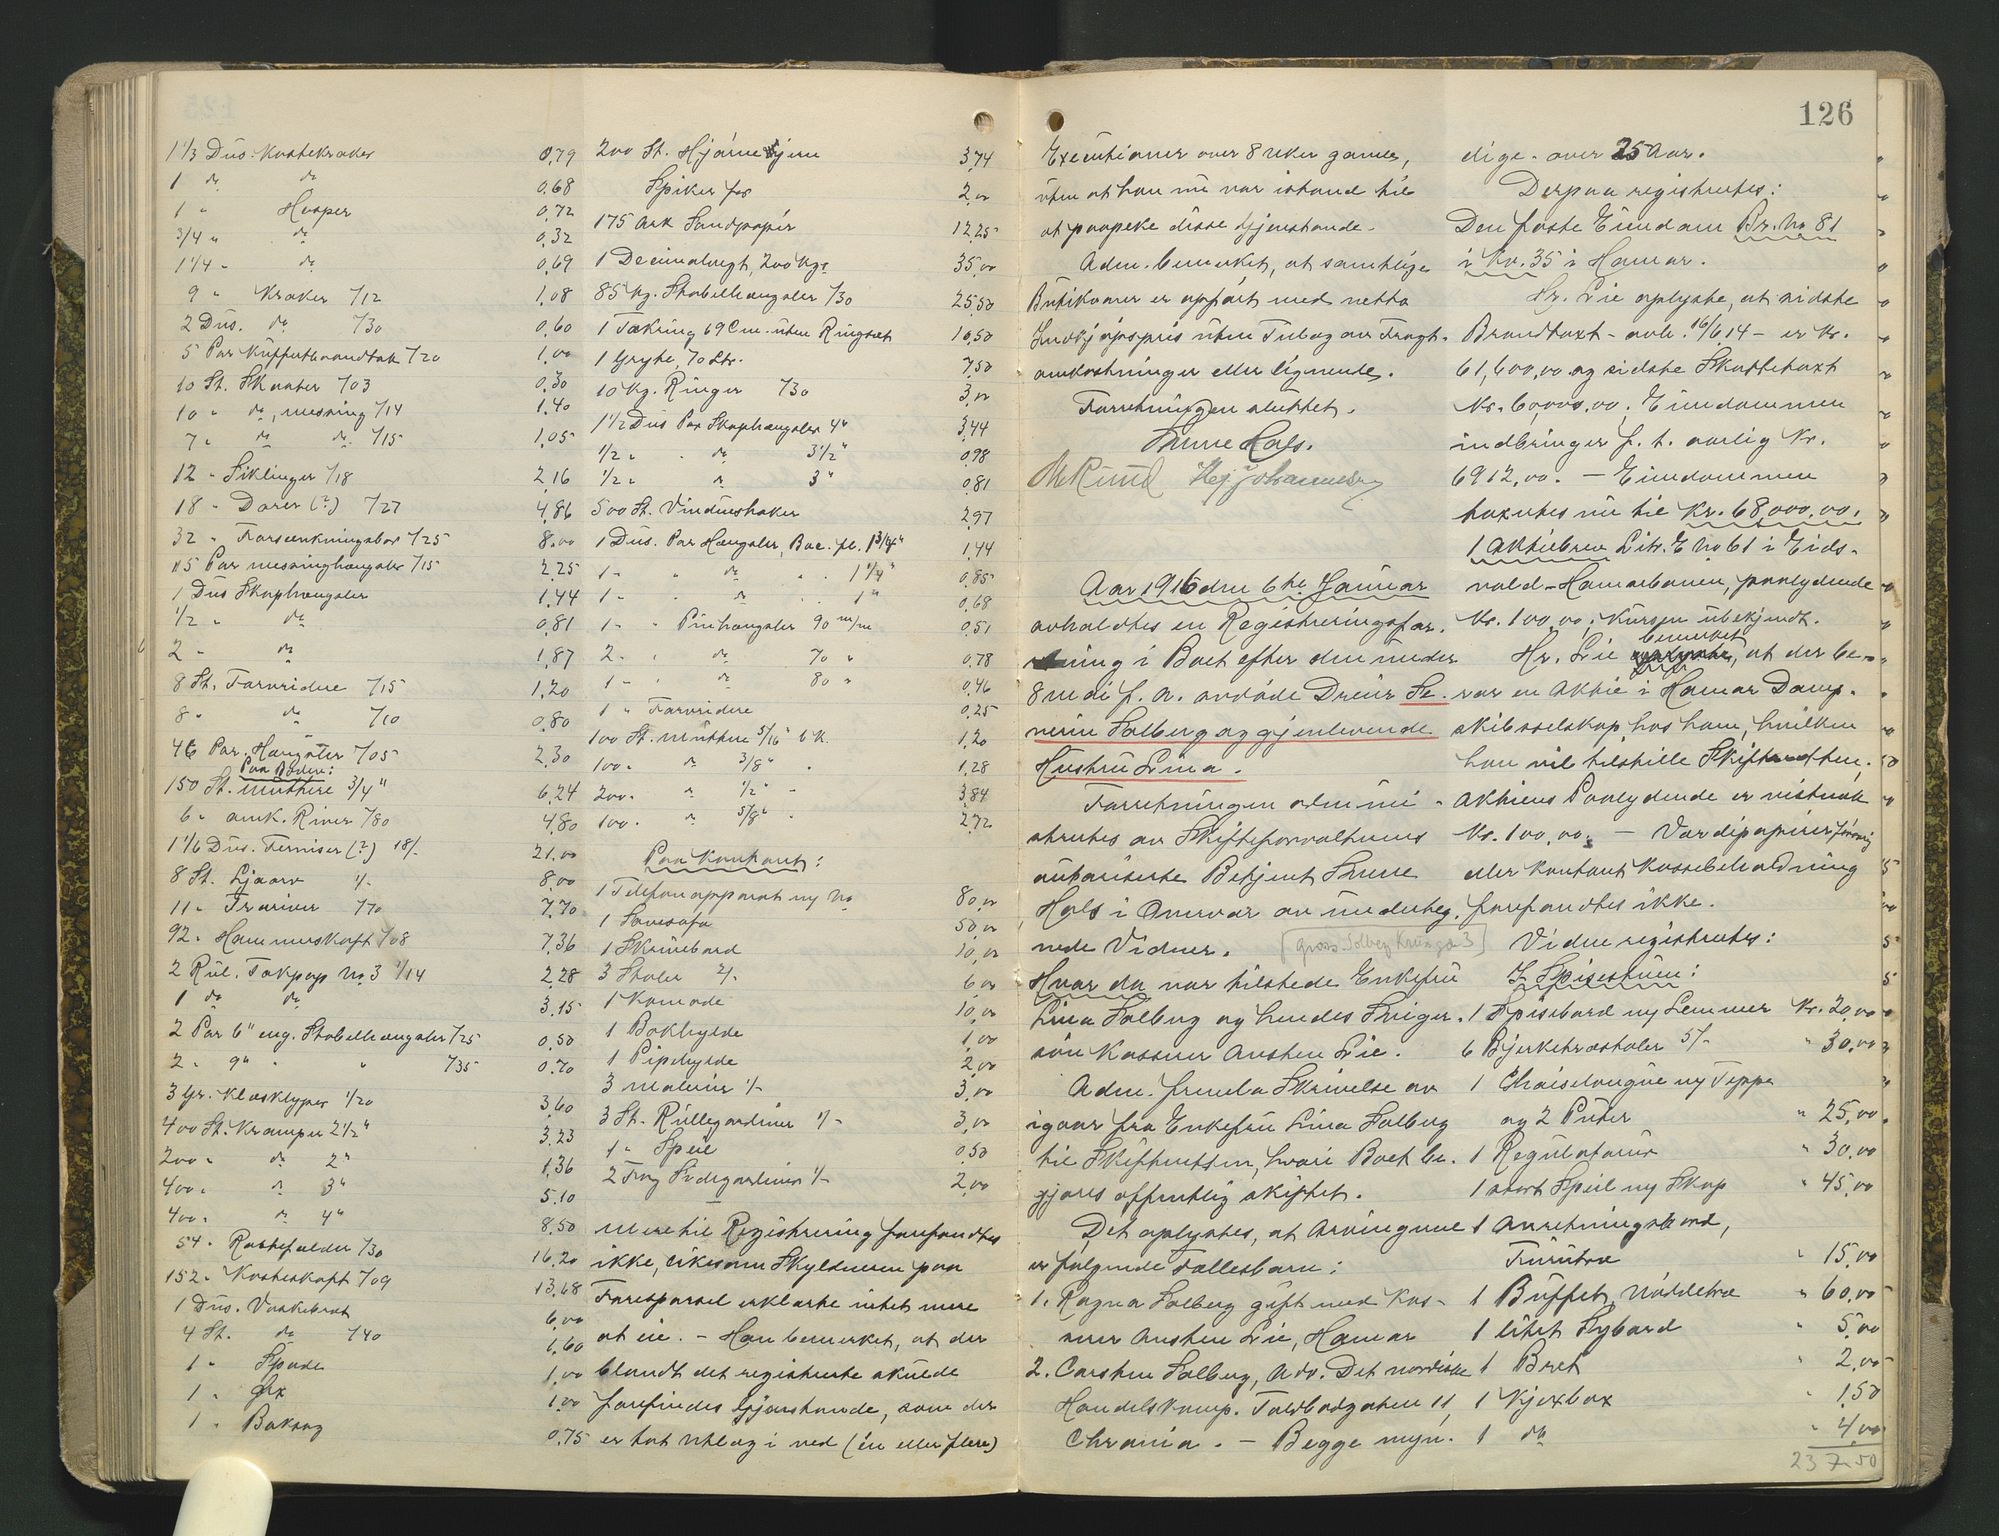 126
1 1/3 Dus. Kostekroker 0,79
1 do do 0,68
1 " Hasper 0,72
3/4 " do 0,32
1 1/4 " do 0,69
9 " Kroker 7/12 1,08
2 Dus. do 7/30 0,60
5 Par Kufferthaandtak 7/20 1,00
10 St. Skaater 7/03 0,30
10 " do, messing 7/14 1,40
7 " do do 7/15 1,05
12 " Siklinger 7/18 2,16
18 " Dorer (?) 7/27 4,86
32 " Forsænkningsbor 7/25 8,00
15 Par messinghængsler 7/15 2,25
1 Dus Skaphængsler 1,44
1/2 " do 0,81
2 " do 1,87
8 St. Farvridere 7/15 1,20
8 " do 7/10 0,80
46 Par Hængsler 7/05 2,30
Paa Boden:
150 St. Muttere 3/4" 6,24
6 " amk. River 7/80 4,80
1 1/6 Dus. Ferniser (?) 18/- 21,00
8 St. Ljaarv 1/- 8,00
11 " Træriver 7/70 7,70
92 " Hammerskaft 7/08 7,36
2 Rul. Takpap No 3 1/14 2,28
1 do do 3,15
2 Par 6" eng. Stabelhængsler 7/25 0,50
2 " 9" " " 7/35 0,70
3 Gr. Klæsklyper 1/20 3,60
400 St. Kramper 2 1/2" 3,23
200 " do 2" 1,36
400 " do 3" 5,10
400 " do 4" 8,50
54 " Rastefælder 7/30 16,20
152 " Kosteskaft 7/09 13,68
1 Dus. Vaskebræt 6,00
4 St. do 7/40 1,60
1 " Spade 1,00
1 " Øx 1,00
1 " Baksag 0,75
200 St. Hjørnejern 3,74
Spiker for 2,00
175 Ark Sandpapir 12,25
1 Decimalvegt, 200 kgs 35,00
85 kg. Stabelhængsler 7/30 25,50
1 Tækring 69 Cm. uten Ringsæt 10,50
1 Gryte, 70 Ltr. 7,50
10 kg. Ringer 7/30 3,00
1 1/2 Dus Par Skaphængsler 4" 3,44
1/2 " " do 3 1/2" 0,98
1/2 " do 3" 0,81
500 St. Vindushaker 2,97
1 Dus. Par Hængsler, Bac. pl. 1 3/4" 1,44
1 " " do " " 1 1/4" 0,85
1 " " do " " 1" 0,68
1 " " Pinhængsler 90 m/m 0,51
2 " " do 70 " 0,78
1 " " do 80 " 0,46
1 " Farvridere 0,25
100 St. Muttere 5/16" 6 K. 1,20
100 " do 3/8" " 1,28
200 " do 1/2" " 3,84
100 " do 5/8" " 2,72
Paa Kontoret:
1 Telefonapparat ny No 80,00
1 Sovesofa 50,00
1 Skrivebord 10,00
3 Stoler 2/- 6,00
1 Komode 10,00
1 Bokhylde 1,00
1 Pipehylde 2,00
3 Malerier 1/- 3,00
3 St. Rullegardiner 1/- 3,00
1 " Speil 0,50
2 Fag Sidegardiner 1/- 2,00
Mere til Registrering forefandtes
ikke, likesom Skyldneren paa
Forespørsel erklærte intet mere
at eie. – Han bemerket, at der
blandt det registrerte skulde
forefindes Gjenstande, som der
er tat Utlæg i ved (én eller flere)
Executioner over 8 uker gamle,
uten at han nu var istand til
at paapeke disse Gjenstande.
Adm. bemerket, at samtlige
Butikvarer er opført med netto
Indkjøpspris uten Tillæg av Fragt-
omkostninger eller lignende.
Forretningen sluttet.
Thune Hals.
M. Ruud Hej. Johannesen
Aar 1916 den 6te Januar
avholdtes en Registreringsfor-
retning i Boet efter den under
8 Mai f. A. avdøde Dreier Se-
verin Solberg og gjenlevende
Hustru Lina.
Forretningen admini-
streertes av Skifteforvalterens
autoriserte Betjent Thune
Hals i Overvær av underteg-
nede Vidner. [Gross. Solberg Krusgt 3]
Hvor da var tilstede Enkefru
Lina Solberg og hendes Sviger-
søn Kasserer Austen Lie.
Adm. fremla Skrivelse av
igaar fra Enkefru Lina Solberg
til Skifteretten, hvori Boet be-
gjæres offentlig skiftet.
Det oplystes, at Arvingerne
er følgende Fællesbarn:
1. Ragna Solberg gift med Kas-
serer Austen Lie, Hamar
2. Carsten Solberg, Adr. Det nordiske
Handelskomp. Toldbodgaten 11,
Chrania. – Begge myn-
dige – over 25 Aar.
Derpaa registrertes:
Den faste Eiendom Br. No 81
i Kv. 35 i Hamar.
Hr. Lie oplyste, at sidste
Brandtaxt – avh. 16/6 14 – er Kr.
61,600,00 og sidste Skattetaxt
Kr. 60,000,00. Eiendommen
indbringer f. t. aarlig Kr.
6912,00. – Eiendommen
taxertes nu til Kr. 68,000,00.
1 Aktiebrev Litr. E No 61 i Eids-
vold-Hamarbanen, paalydende
Kr. 100,00; Kursen ubekjendt.
Hr. Lie bemerket, at der be-
ror en Aktie i Hamar Damp-
skibsselskap hos ham, hvilken
han vil tilstille Skifteretten.
Aktiens Paalydende er vistnok
Kr. 100,00. – Værdipapirer forøvrig
eller kontant Kassebeholdning
forefandtes ikke.
Videre registrertes:
I Spisestuen:
1 Spisebord ny Lemmer Kr. 20,00
6 Bjerketræstoler 5/- " 30,00
1 Chaiselongue ny Teppe
og 2 Puter " 25,00
1 Regulatorur " 30,00
1 stort Speil ny Skap " 45,00
1 Anretningsbord,
Furutræ " 15,00
1 Buffet, Nøddetræ " 60,00
1 litet Sybord " 5,00
1 Bret " 2,00
1 Kjoxbox " 1,50
1 do " 4,00
237,50